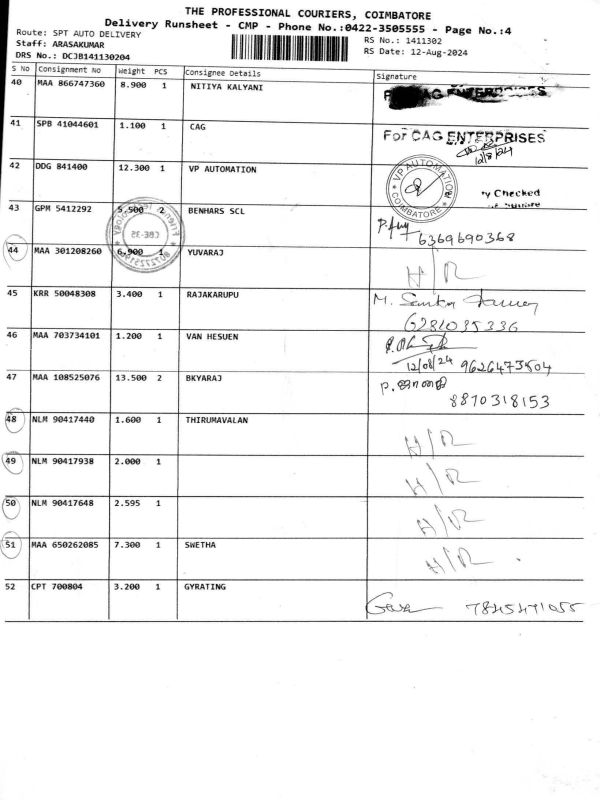 THE PROFESSIONAL COURIERS, COIMBATORE
Delivery Runsheet - CMP - Phone No.:0422-3505555 - Page No.:4
Route: SPT AUTO DELIVERY
RS No.: 1411302
Staff: ARASAKUMAR
RS Date: 12-Aug-2024
DRS No.: DCJB141130204
S No Consignment No Weight PCS Consignee Details Signature
40 MAA 866747360 8.900 1 NITIYA KALYANI
41 SPB 41044601 1.100 1 CAG For CAG ENTERPRISES
12/8/24
42 DDG 841400 12.300 1 VP AUTOMATION VP AUTOMATION COIMBATORE
Checked
43 GPM 5412292 5.500 2 BENHARS SCL
6369690368
44 MAA 301208260 6.900 1 YUVARAJ H/R
45 KRR 50048308 3.400 1 RAJAKARUPU M.
6281035336
46 MAA 703734101 1.200 1 VAN HESUEN
12/08/24 9626473504
47 MAA 108525076 13.500 2 BKYARAJ P.
8870318153
48 NLM 90417440 1.600 1 THIRUMAVALAN H/R
49 NLM 90417938 2.000 1 H/R
50 NLM 90417648 2.595 1 H/R
51 MAA 650262085 7.300 1 SWETHA H/R
52 CPT 700804 3.200 1 GYRATING